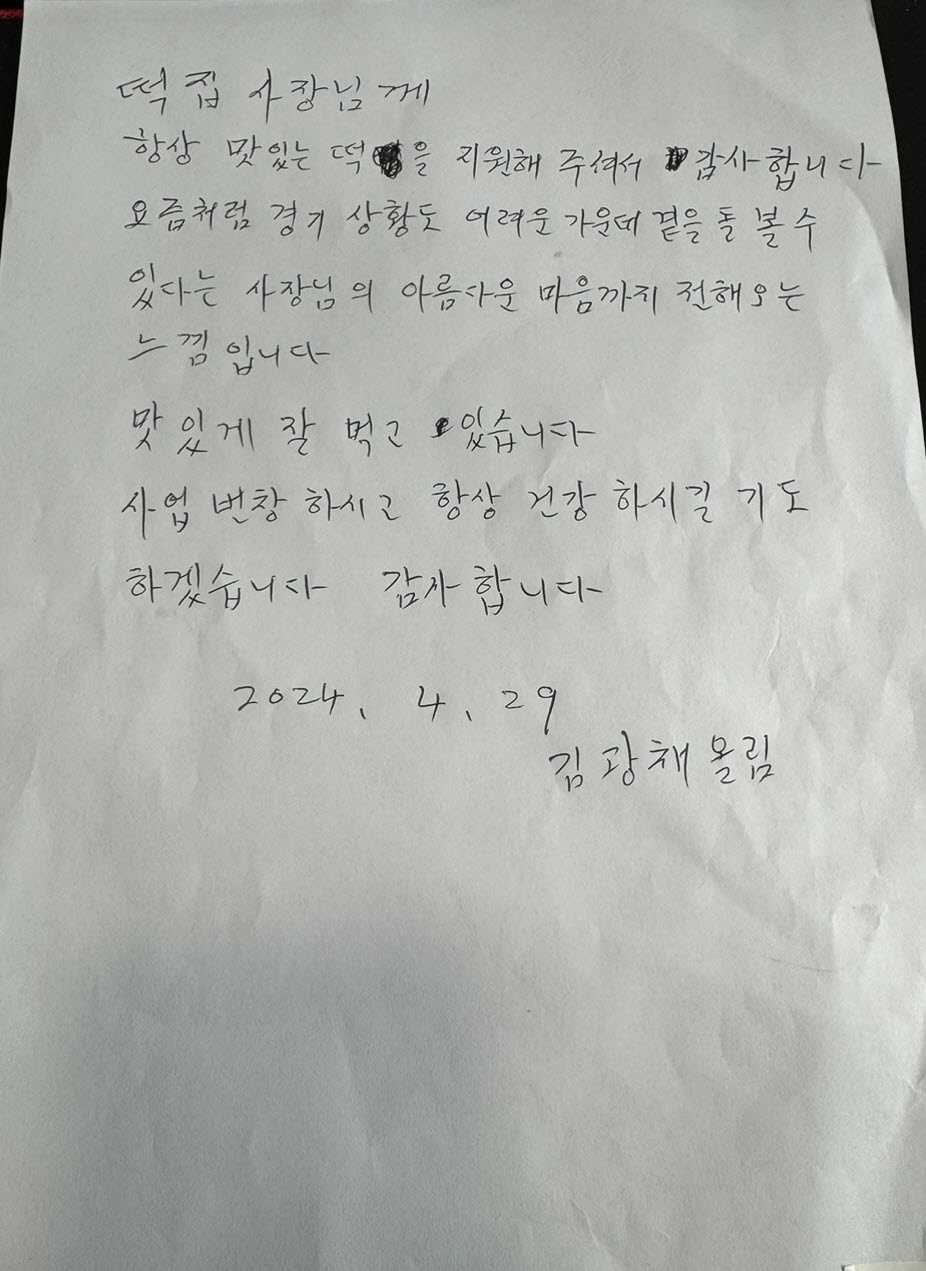 떡집 사장님께
항상 맛있는 떡을 지원해 주셔서 감사합니다
요즘처럼 경기 상황도 어려운 가운데 곁을 돌 볼 수
있다는 사장님의 아름다운 마음까지 전해오는
느낌입니다
맛있게 잘 먹고 있습니다
사업 번창 하시고 항상 건강 하시길 기도
하겠습니다 감사합니다
2024. 4. 29
김광채 올림